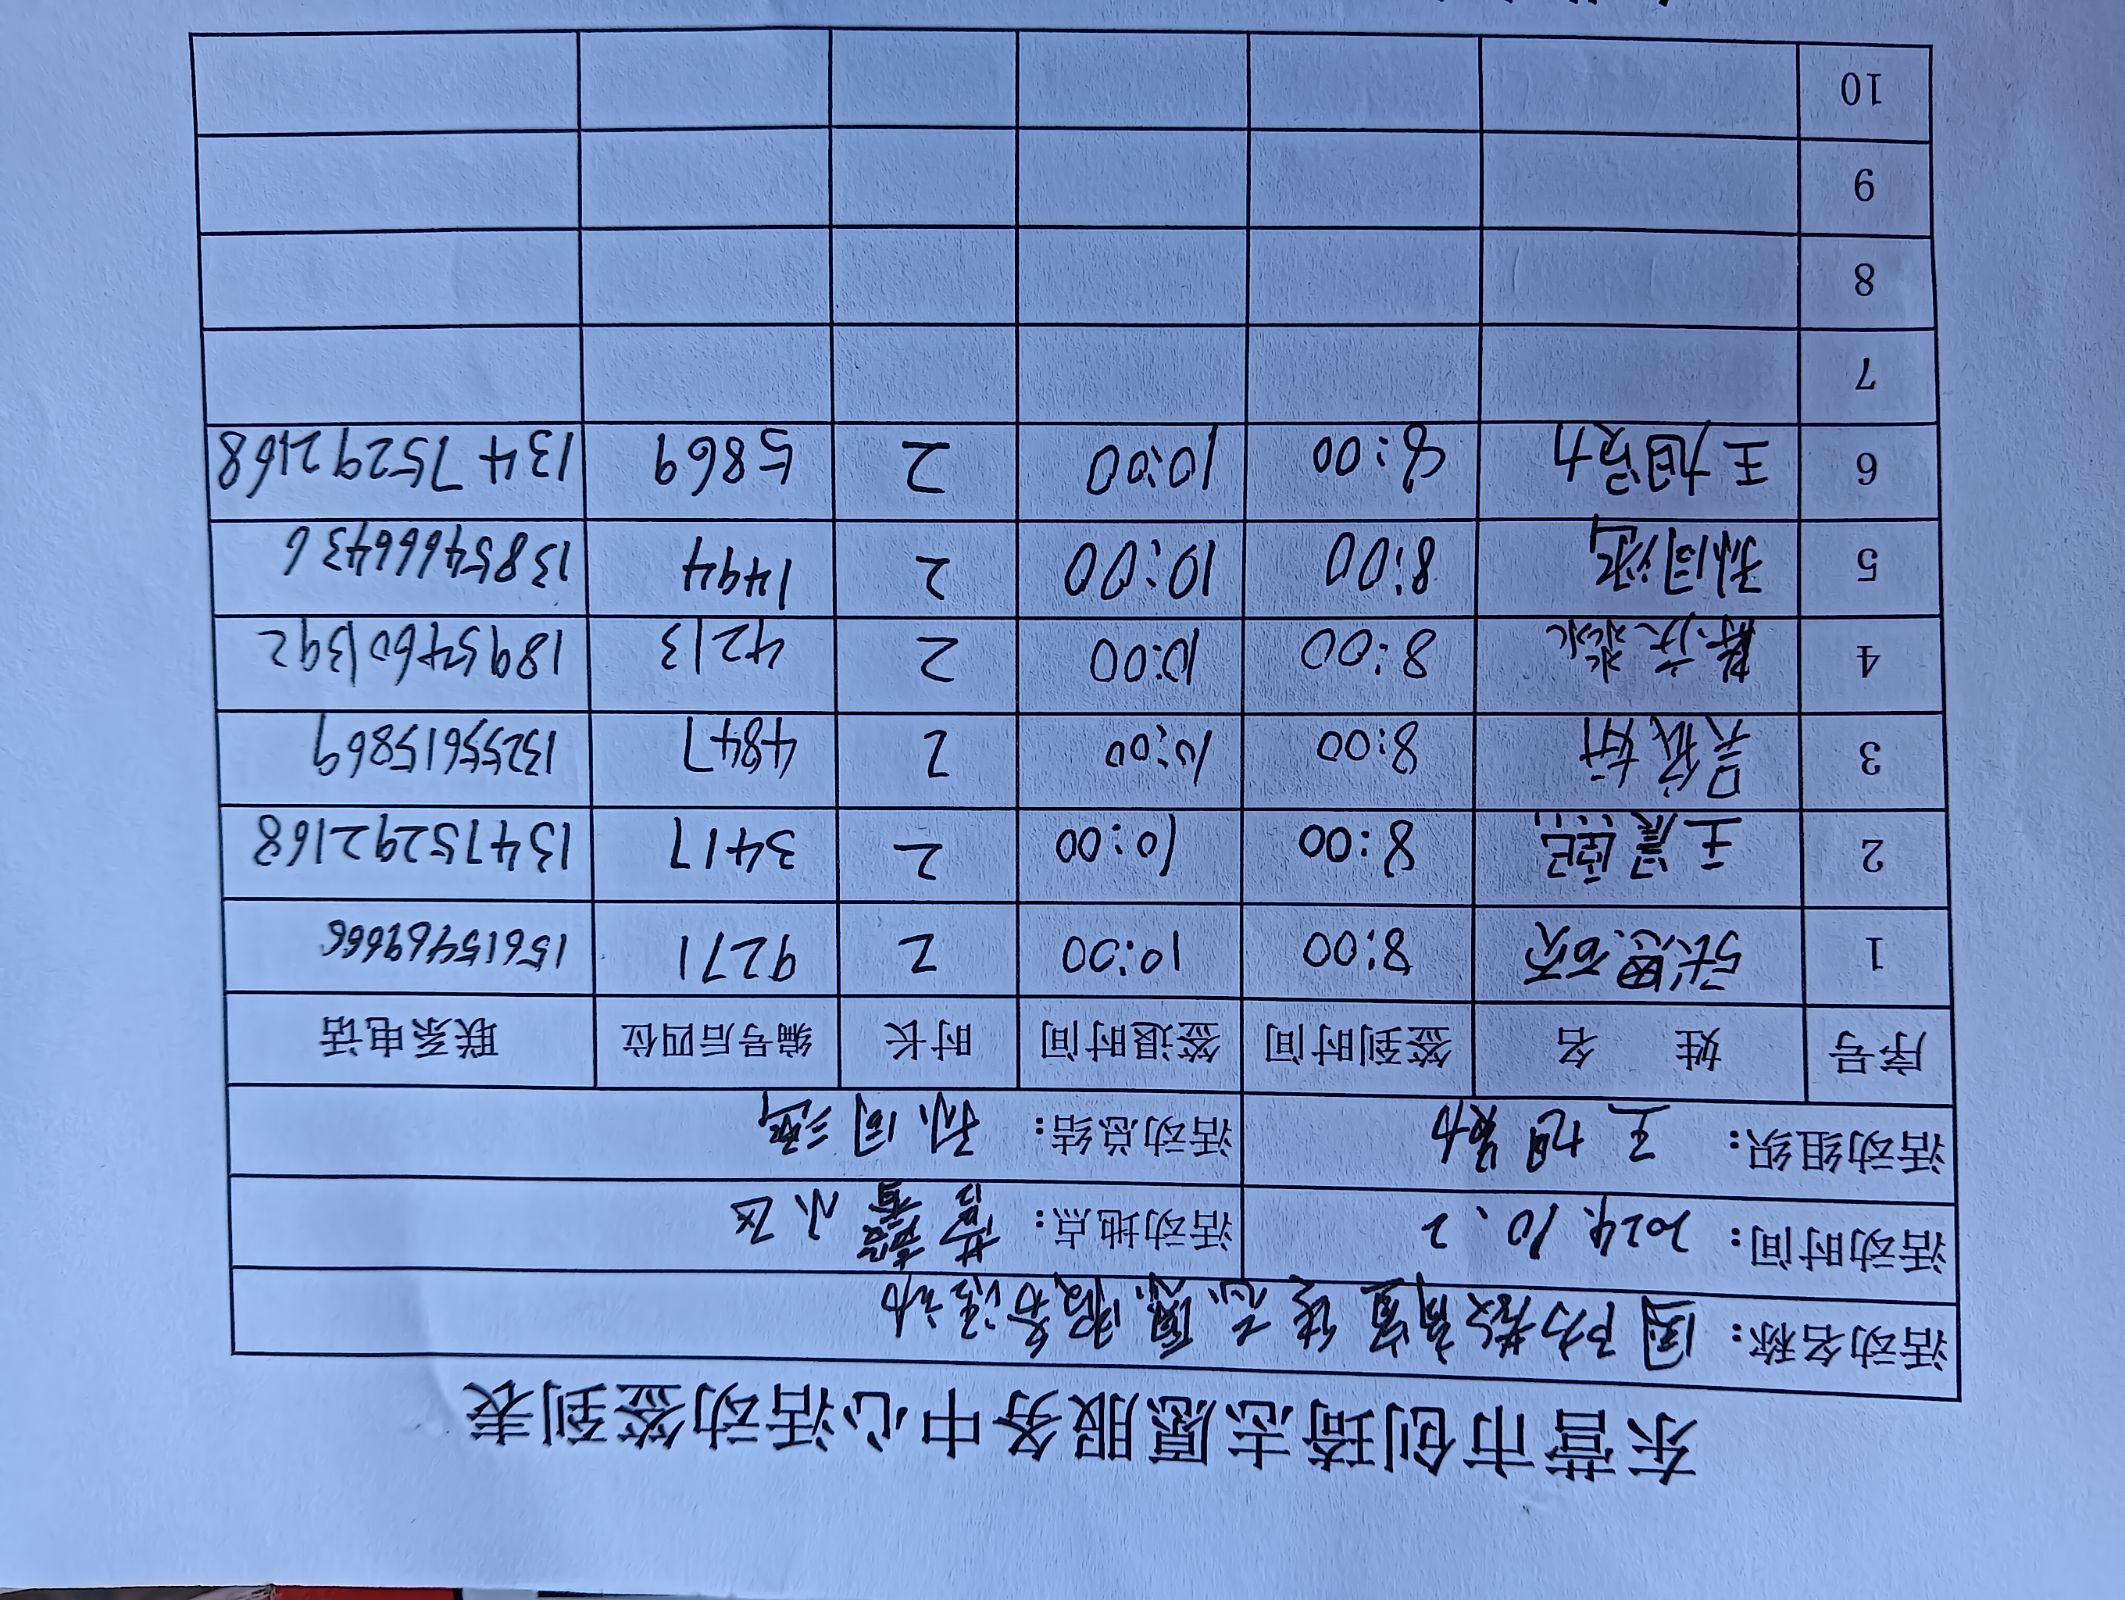 东营市创琦志愿服务中心活动签到表
活动名称： 国防教育宣传志愿服务活动
活动时间： 2024.10.2 活动地点： 小区
活动组织： 王旭 活动总结： 孙同
序号 姓 名 签到时间 签退时间 时长 编号后四位 联系电话
1 张恩硕 8:00 10:00 2 9271 15615469666
2 王晨 8:00 10:00 2 3417 13475292168
3 吴依妍 8:00 10:00 2 4847 13255615869
4 陈庆淼 8:00 10:00 2 4213 18954601392
5 孙同 8:00 10:00 2 1494 13854666436
6 王旭 8:00 10:00 2 5869 13475292168
7
8
9
10